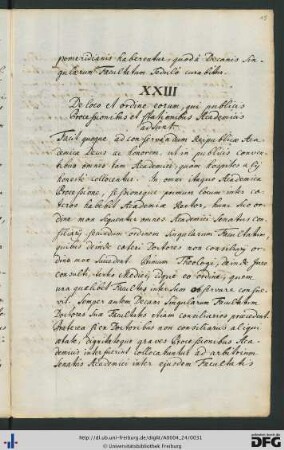 pomeridianis habeantur, quod à Decanis Sin-
gularum Facultatum sedulò curabitur.
XXIII
De loco et ordine eorum, qui publicis
Processionibus et stationibus Academicis
adsunt.
Facit quoque ad conservandum Reipublicæ Aca-
demicæ decus et honorem, ut in publicis conven-
tibus omnes tam Academici, quam hospites
honestè collocentur. In omni itaque Academica
Processione, sessioneque primum locum inter cæ-
teros habebit Academiæ Rector, hunc suo or-
dine mox sequentur omnes Academici Senatus con-
siliarij secundum ordinem singularum Facultatum,
quibus deinde cæteri Doctores non consiliarij or-
dine non succedent. Primum Theologi, deinde Juris
consulti, tertio Medici, eoque ordine, quem
una quælibet Facultas inter suos observare consue-
vit. Semper autem Decani singularum Facultatum
Doctores suæ Facultatis etiam consiliarios præcedent.
Præterea si ex Doctoribus non consiliarijs aliqui
ætate, dignitateque graves Processionibus Aca-
demicis interfuerint collocabuntur ad arbitrium
Senatus Academici inter ejusdem Facultatis
http://dl.ub.uni-freiburg.de/diglit/A0004_24/0051
gefördert durch die
DFG